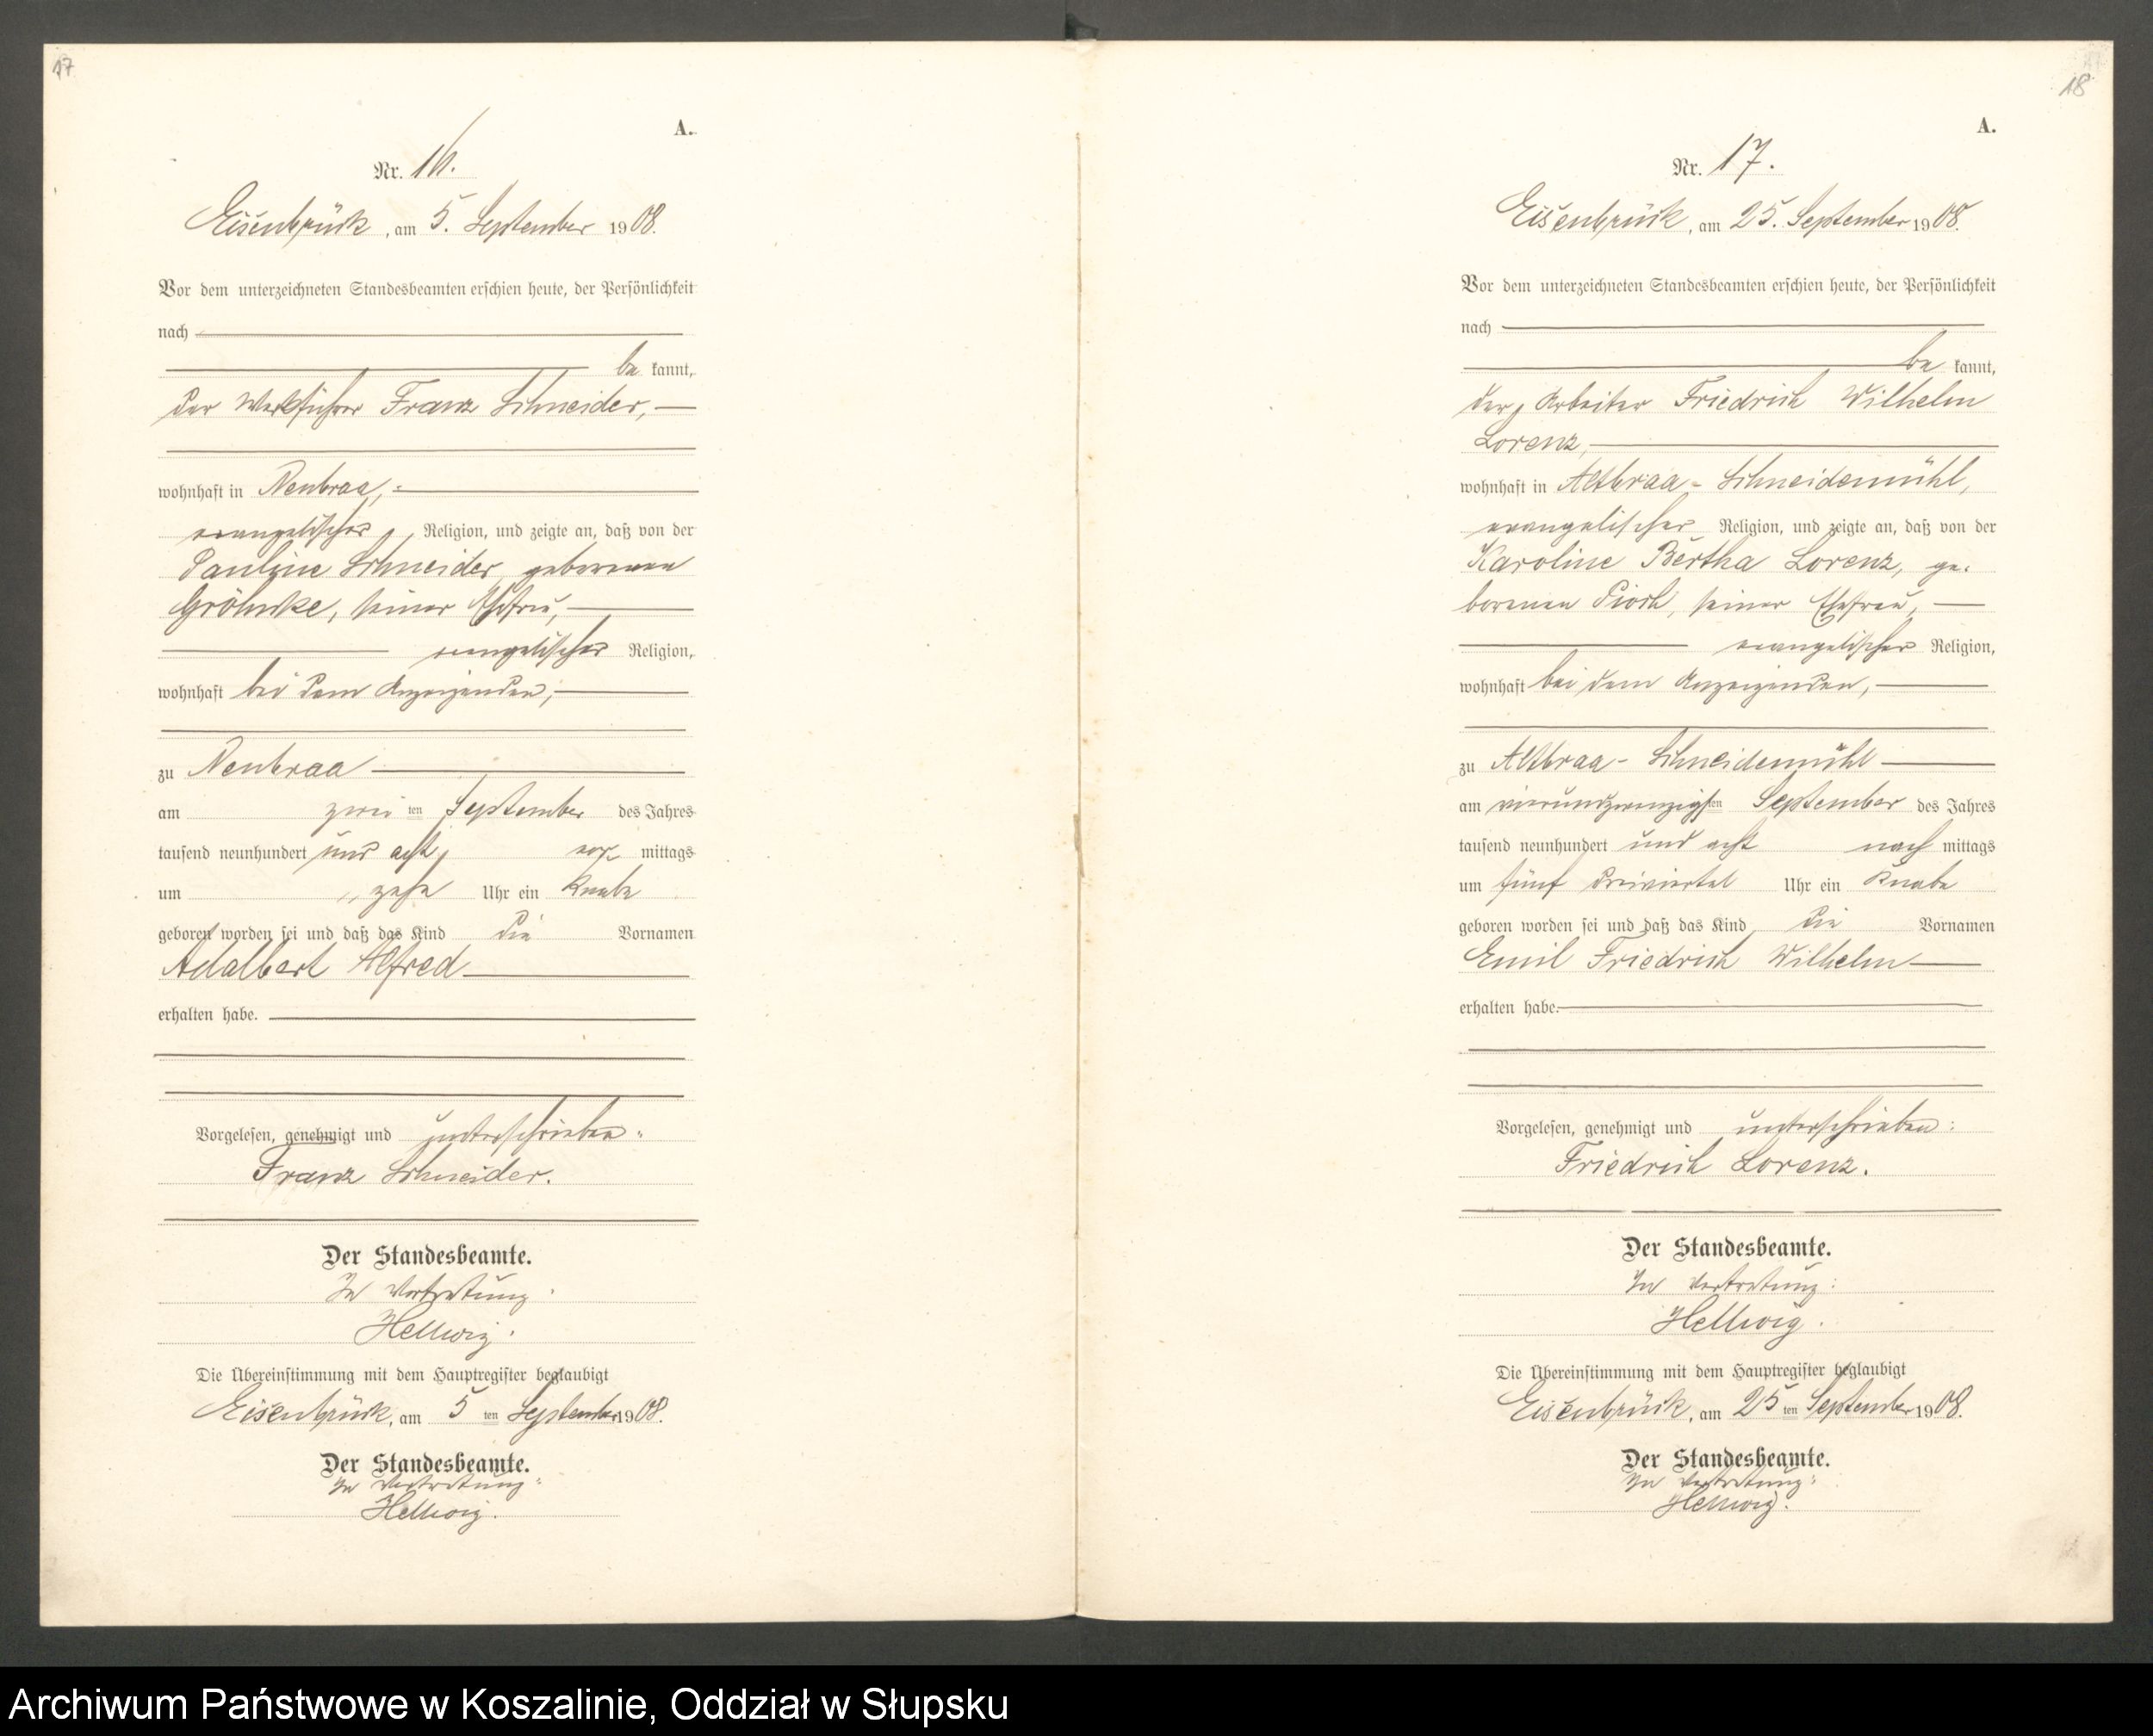 17
A.
Nr. 16.
Eisenbrück, am 5. September 1908.
Vor dem unterzeichneten Standesbeamten erschien heute, der Persönlichkeit
nach
be kannt,
der Werkführer Franz Schneider,
wohnhaft in Neubraa,
evangelischer Religion, und zeigte an, daß von der
Pauline Schneider, geborenen
Gröhnke, seiner Ehefrau,
evangelischer Religion,
wohnhaft bei dem Anzeigenden,
zu Neubraa
am zwei ten September des Jahres
tausend neunhundert und acht, vor mittags
um zehn Uhr ein Knabe
geboren worden sei und daß das Kind die Vornamen
Adalbert Alfred
erhalten habe.
Vorgelesen, genehmigt und unterschrieben:
Franz Schneider.
Der Standesbeamte.
In Vertretung:
Hellwig.
Die Übereinstimmung mit dem Hauptregister beglaubigt
Eisenbrück, am 5 ten September 1908.
Der Standesbeamte.
In Vertretung:
Hellwig.
18
A.
Nr. 17.
Eisenbrück, am 25. September 1908.
Vor dem unterzeichneten Standesbeamten erschien heute, der Persönlichkeit
nach
be kannt,
der Arbeiter Friedrich Wilhelm
Lorenz,
wohnhaft in Altbraa-Schneidemühl,
evangelischer Religion, und zeigte an, daß von der
Karoline Bertha Lorenz, ge-
borenen Pioch, seiner Ehefrau,
evangelischer Religion,
wohnhaft bei dem Anzeigenden,
zu Altbraa-Schneidemühl
am vierundzwanzigsten September des Jahres
tausend neunhundert und acht nach mittags
um fünf dreiviertel Uhr ein Knabe
geboren worden sei und daß das Kind die Vornamen
Emil Friedrich Wilhelm
erhalten habe.
Vorgelesen, genehmigt und unterschrieben:
Friedrich Lorenz.
Der Standesbeamte.
In Vertretung:
Hellwig.
Die Übereinstimmung mit dem Hauptregister beglaubigt
Eisenbrück, am 25 ten September 1908.
Der Standesbeamte.
In Vertretung:
Hellwig.
Archiwum Państwowe w Koszalinie, Oddział w Słupsku